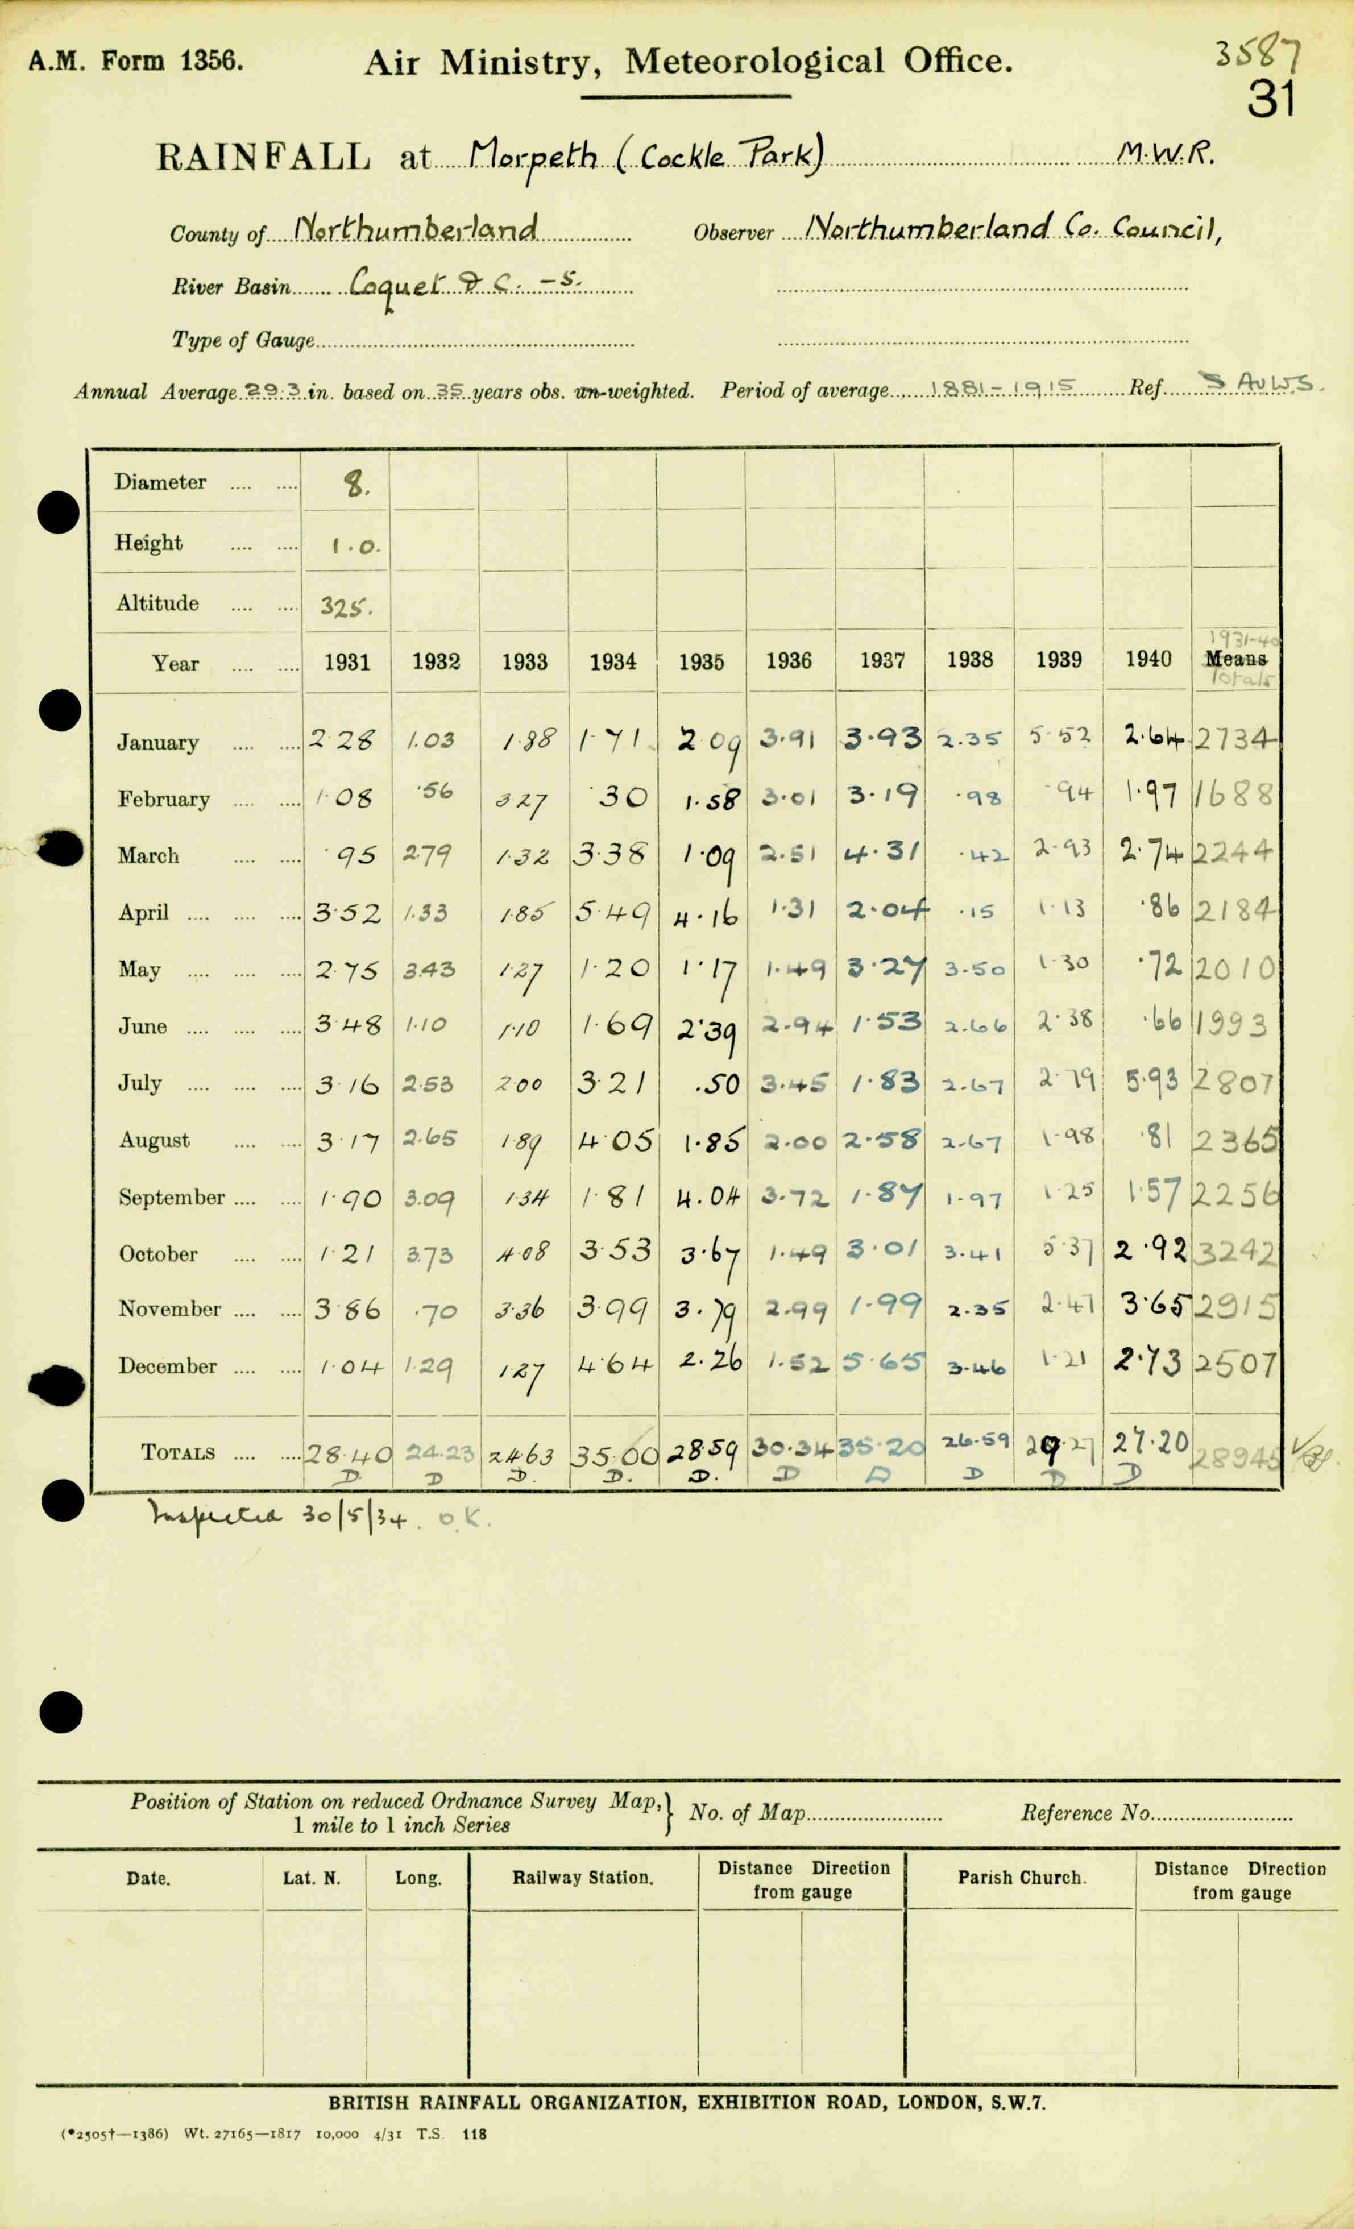 A.M. Form 1356. Air Ministry, Meteorological Office. 3587
31
RAINFALL at Morpeth (Cockle Park) M.W.R.
County of Northumberland Observer Northumberland Co. Council,
River Basin Coquet & C. -S.
Type of Gauge
Annual Average 29.3 in. based on 35 years obs. un-weighted. Period of average 1881-1915 Ref. S Av W.S.
Diameter 8.
Height 1.0.
Altitude 325.
1931-40
Year 1931 1932 1933 1934 1935 1936 1937 1938 1939 1940 Means
Totals
January 2.28 1.03 1.88 1.71 2.09 3.91 3.93 2.35 5.52 2.64 2734
February 1.08 .56 3.27 .30 1.58 3.01 3.19 .98 .94 1.97 1688
March .95 2.79 1.32 3.38 1.09 2.51 4.31 .42 2.93 2.74 2244
April 3.52 1.33 1.85 5.49 4.16 1.31 2.04 .15 1.13 .86 2184
May 2.75 3.43 1.27 1.20 1.17 1.49 3.27 3.50 1.30 .72 2010
June 3.48 1.10 1.10 1.69 2.39 2.94 1.53 2.66 2.38 .66 1993
July 3.16 2.53 2.00 3.21 .50 3.45 1.83 2.67 2.79 5.93 2807
August 3.17 2.65 1.89 4.05 1.85 2.00 2.58 2.67 1.98 .81 2365
September 1.90 3.09 1.34 1.81 4.04 3.72 1.87 1.97 1.25 1.57 2256
October 1.21 3.73 4.08 3.53 3.67 1.49 3.01 3.41 5.37 2.92 3242
November 3.86 .70 3.36 3.99 3.79 2.99 1.99 2.35 2.47 3.65 2915
December 1.04 1.29 1.27 4.64 2.26 1.52 5.65 3.46 1.21 2.73 2507
TOTALS 28.40 24.23 24.63 35.00 28.59 30.34 35.20 26.59 29.27 27.20 28945
D. D D. D. D. D D D D D
Inspected 30/5/34. O.K.
Position of Station on reduced Ordnance Survey Map, } No. of Map Reference No.
1 mile to 1 inch Series
Date. Lat. N. Long. Railway Station. Distance Direction Parish Church. Distance Direction
from gauge from gauge
BRITISH RAINFALL ORGANIZATION, EXHIBITION ROAD, LONDON, S.W.7.
(*2505†—1386) Wt. 27165—1817 10,000 4/31 T.S. 118